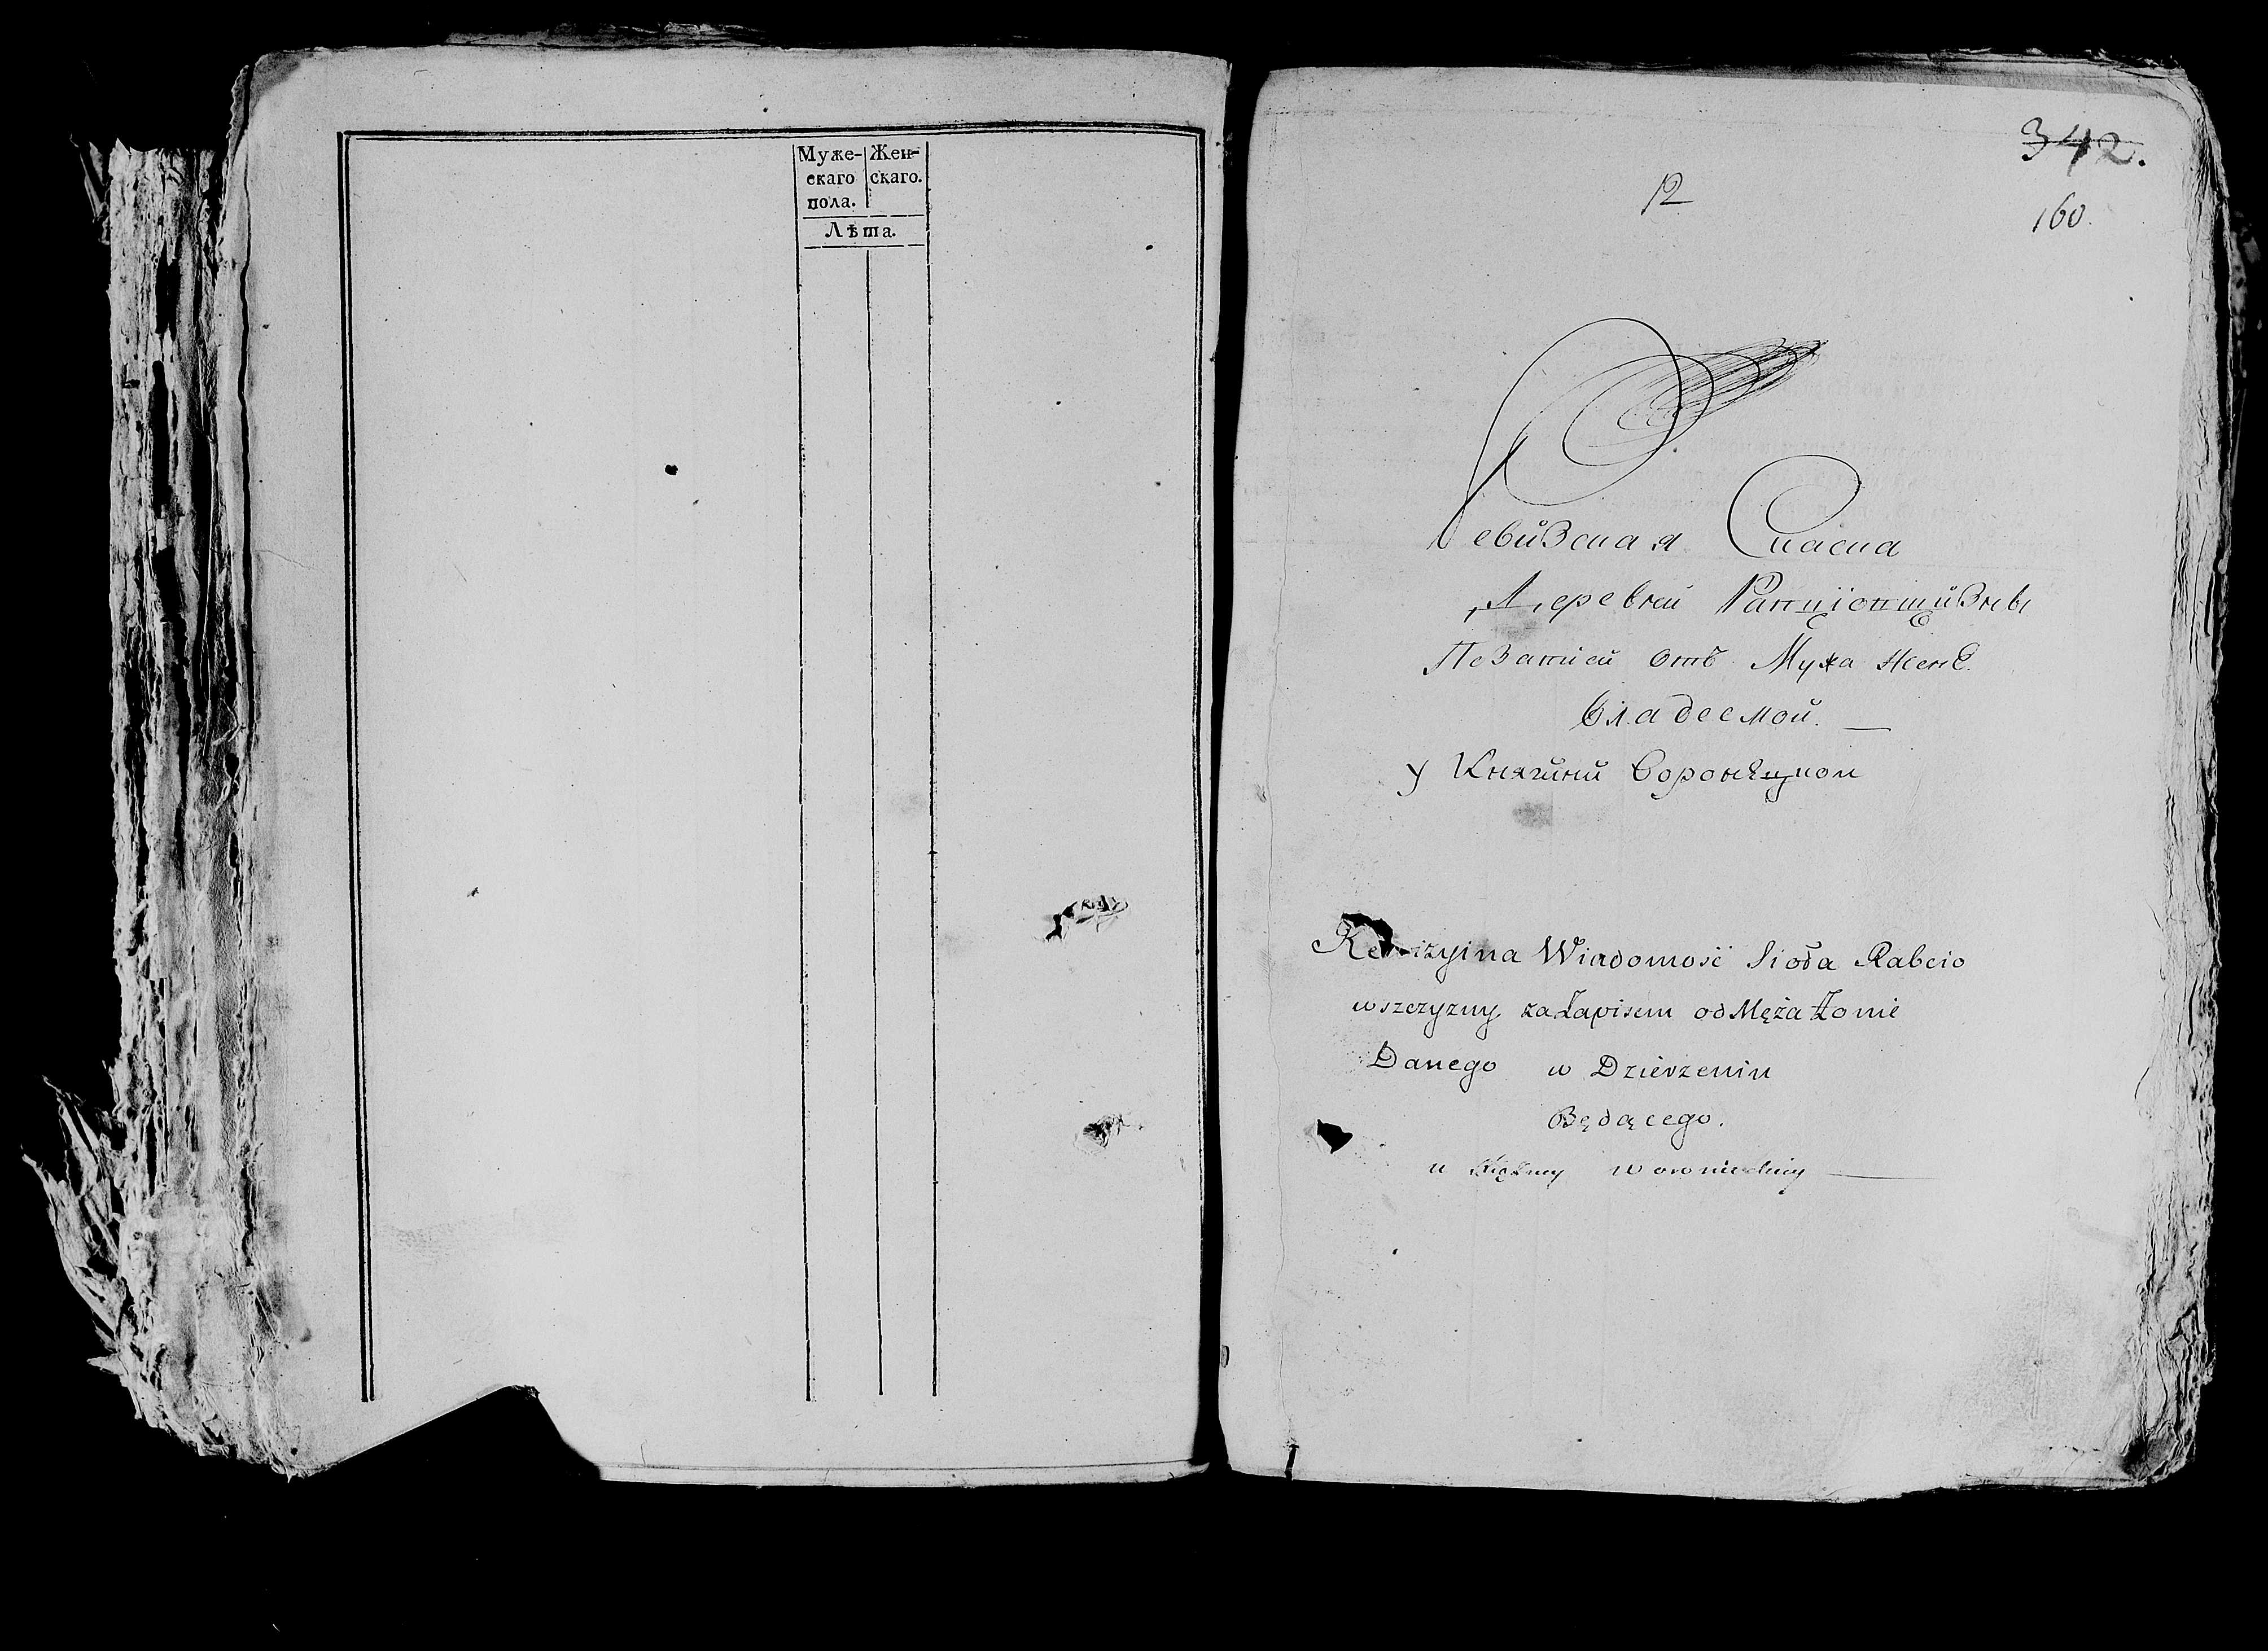 Муже-
скаго
пола.
Жен-
скаго.
Лѣта.
342.
12
160.
Ревизская Скаска
Деревни
отъ Мужа женѣ
Владеемой.
у Княгини Воронѣцкой
Rewizyina Wiadomość Sioła Rabcio
wszczyzny za Zapisem od Męża Żonie
Danego w Dzierżeniu
Będącego.
u Xiężny Woronieckiey